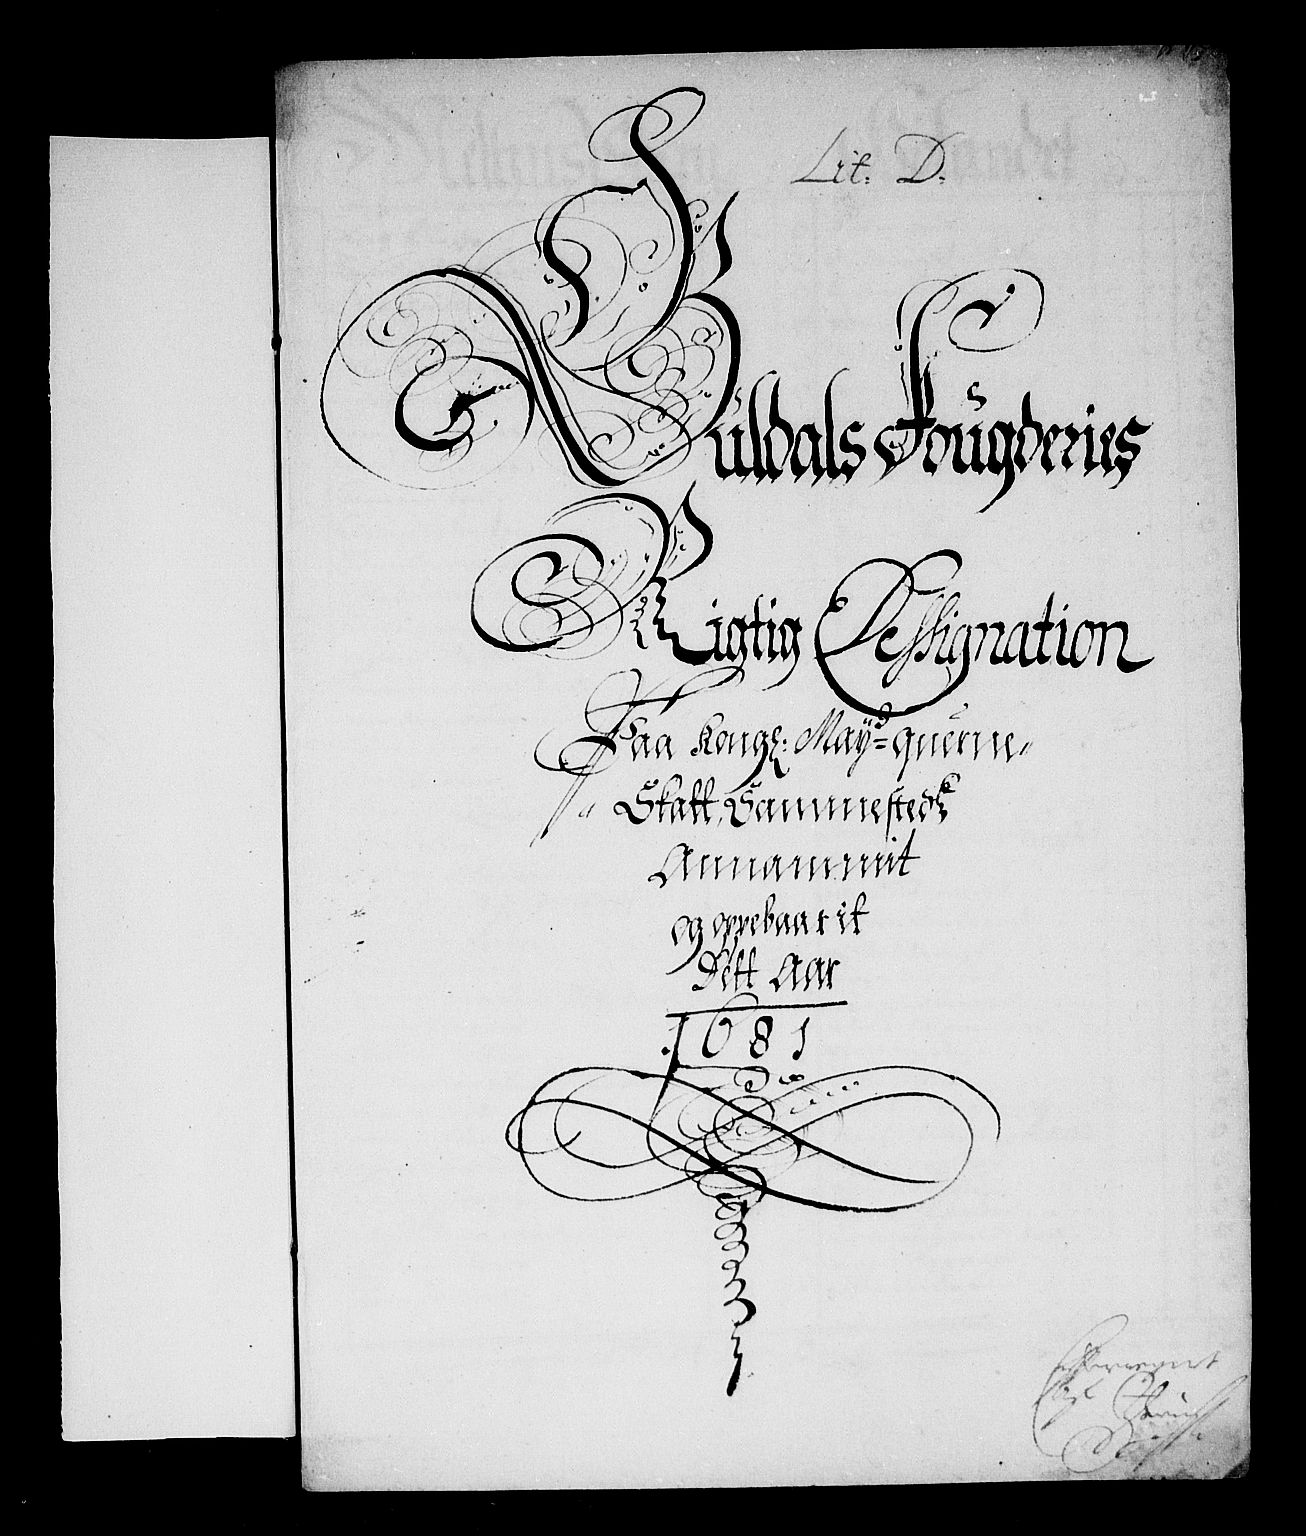 Lit: D:
Guldals Fougderies
Rigtig Dessignation
Paa Kongl: May: querne-
Skatt, Sammesteds
Annammit
og oppebaarit
Dett Aar
1681